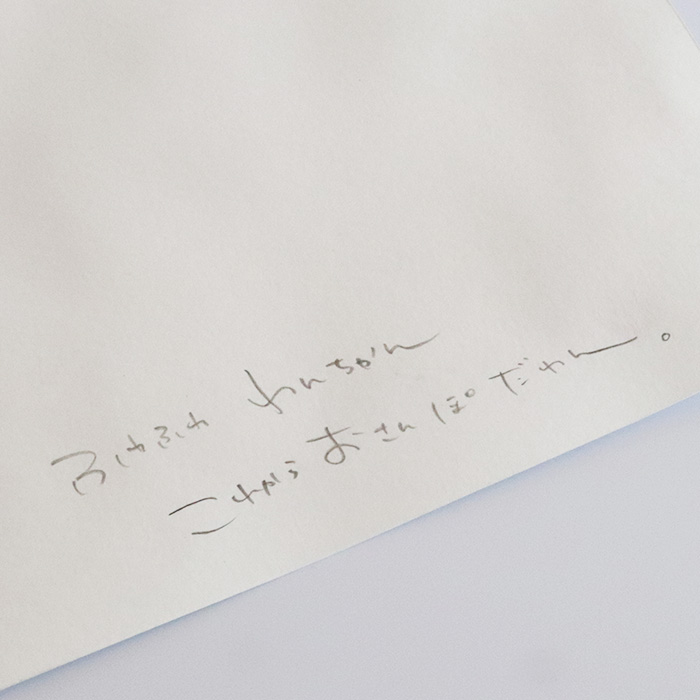 ふわふわ わんちゃん
これから おさんぽ だわん。